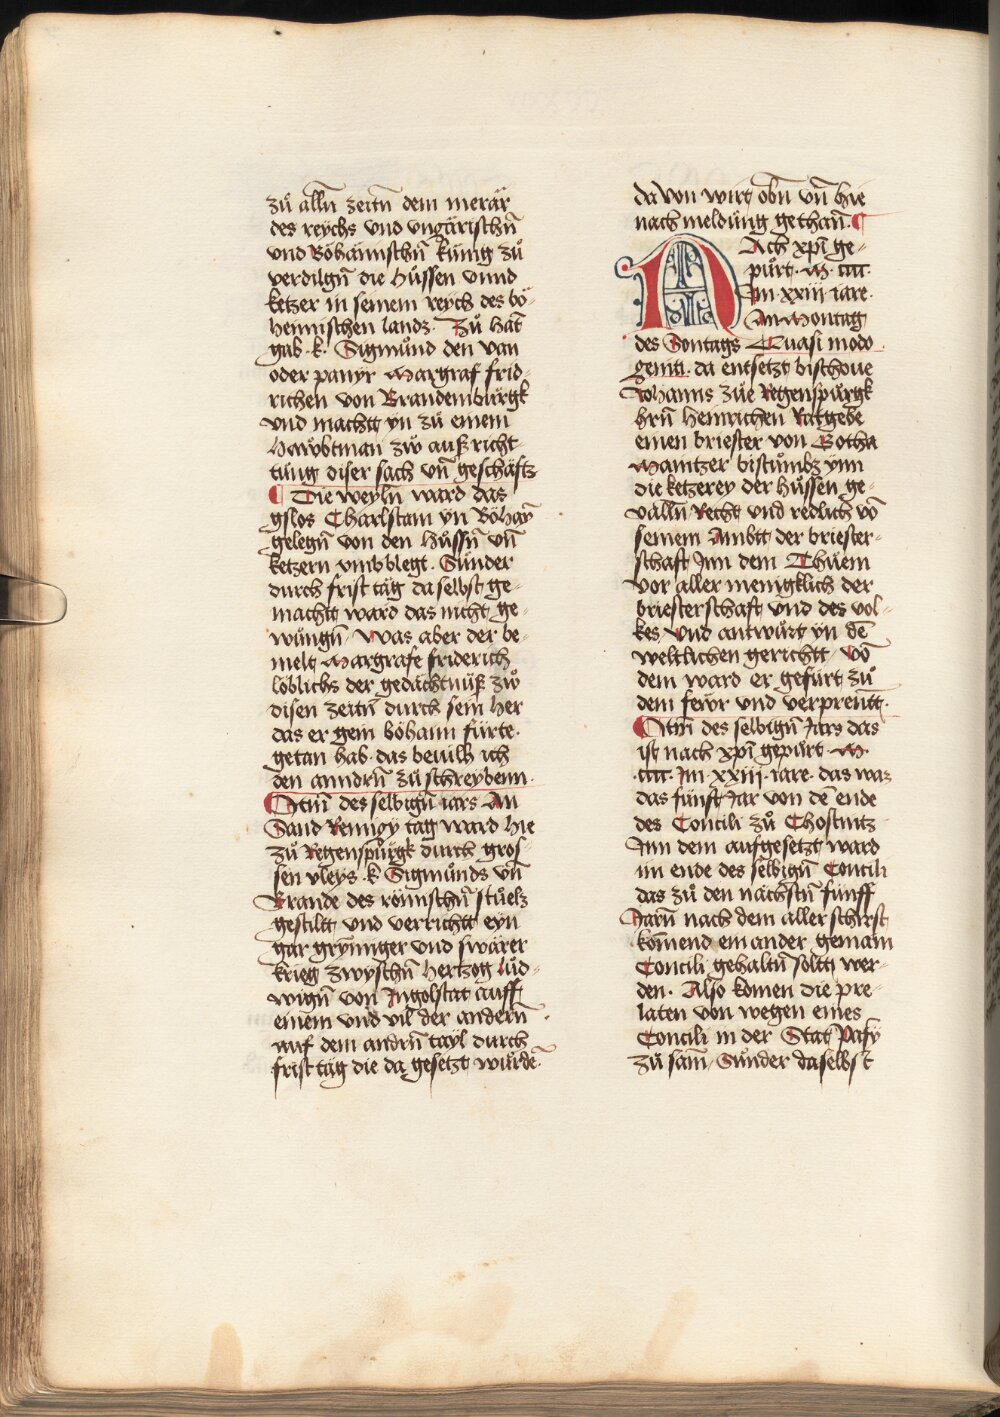 zů allñ zeitñ dem merär
des reychs und ungärischñ
und Böhämischñ künig zů
verdilgñ die hůssen unnd
ketzer in seinem reych des bö-
hemischen landz. Zů hat
gab .k. Sigmůnd den van
oder panyr Margraf frid-
richen von Brandemburgk
und machtt yn zů einem
hawbtman zw auß richt-
tung diser sach vñ geschäftz
¶ Die weyln ward das
gslos Charlstain yn Böhaȳ
gelegñ von den hůssñ vñ
ketzern umb blegt. Sůnder
durch frist täg da selbst ge-
machtt ward das nicht ge-
wungñ. Was aber der be-
melt Margrafe friderich
löblichs der gedächtnůß zw
disen zeitñ durch sein her
das er gein böhaim fürte.
getan hab. das bevilh ich
den anndrñ zů schreybenn.
Itm̄ des selbigñ iars An
Sand Remigy tag ward hie
zů Regenspůrgk durch gros-
sen vleys .k. Sigmůnds vñ
Brande des römischñ stůelz
gestiltt und verrichtt eyn
gar grymiger und swärer
krieg zwyschñ hertzog lud-
wigñ von Ingolstat auff
einem und vil der andern
auf dem andrñ tayl durch
frist täg die da gesetzt wurdē.
da von wirt obñ vñ hie
nach meldung gethañ. ¶
NAch xp̄i ge-
pürt. M. cccc.
Im xxiii iare.
An Montag
des Sontags Quasi modo
geniti. da entsetzt bischove
Johanns züe Regenspůrgk
hrñ heinrichen Ratgebe
einen briester von Gotha
Maintzer bistumbz ynn
die ketzerey der hůssen ge-
vallñ Recht und redlich vō
seinem Ambtt der briester-
schaft Inn dem Thuem
vor aller menigklich der
briesterschaft und des vol-
kes, und antwurt yn dē
weltlichen gerichtt. Vō
dem ward er gefürt zů
dem fewr und verprentt.
Itm̄ des selbigñ Jars das
ist nach xp̄i gepürt. M.
.cccc. Im .xxiii. iare. das was
das fünft Jar von dē ende
des Concili zů Chostnitz
Inn dem aufgesetzt ward
im ende des selbigñ Concili
das zů den nächstñ fünff
Jarñ nach dem aller schirst
kōmend ein ander gemain
Concili gehaltñ soltt wer-
den. Also komen die pre-
laten von wegen eines
Concili in der Stat Pafy
zů sam, Sůnder daselbst